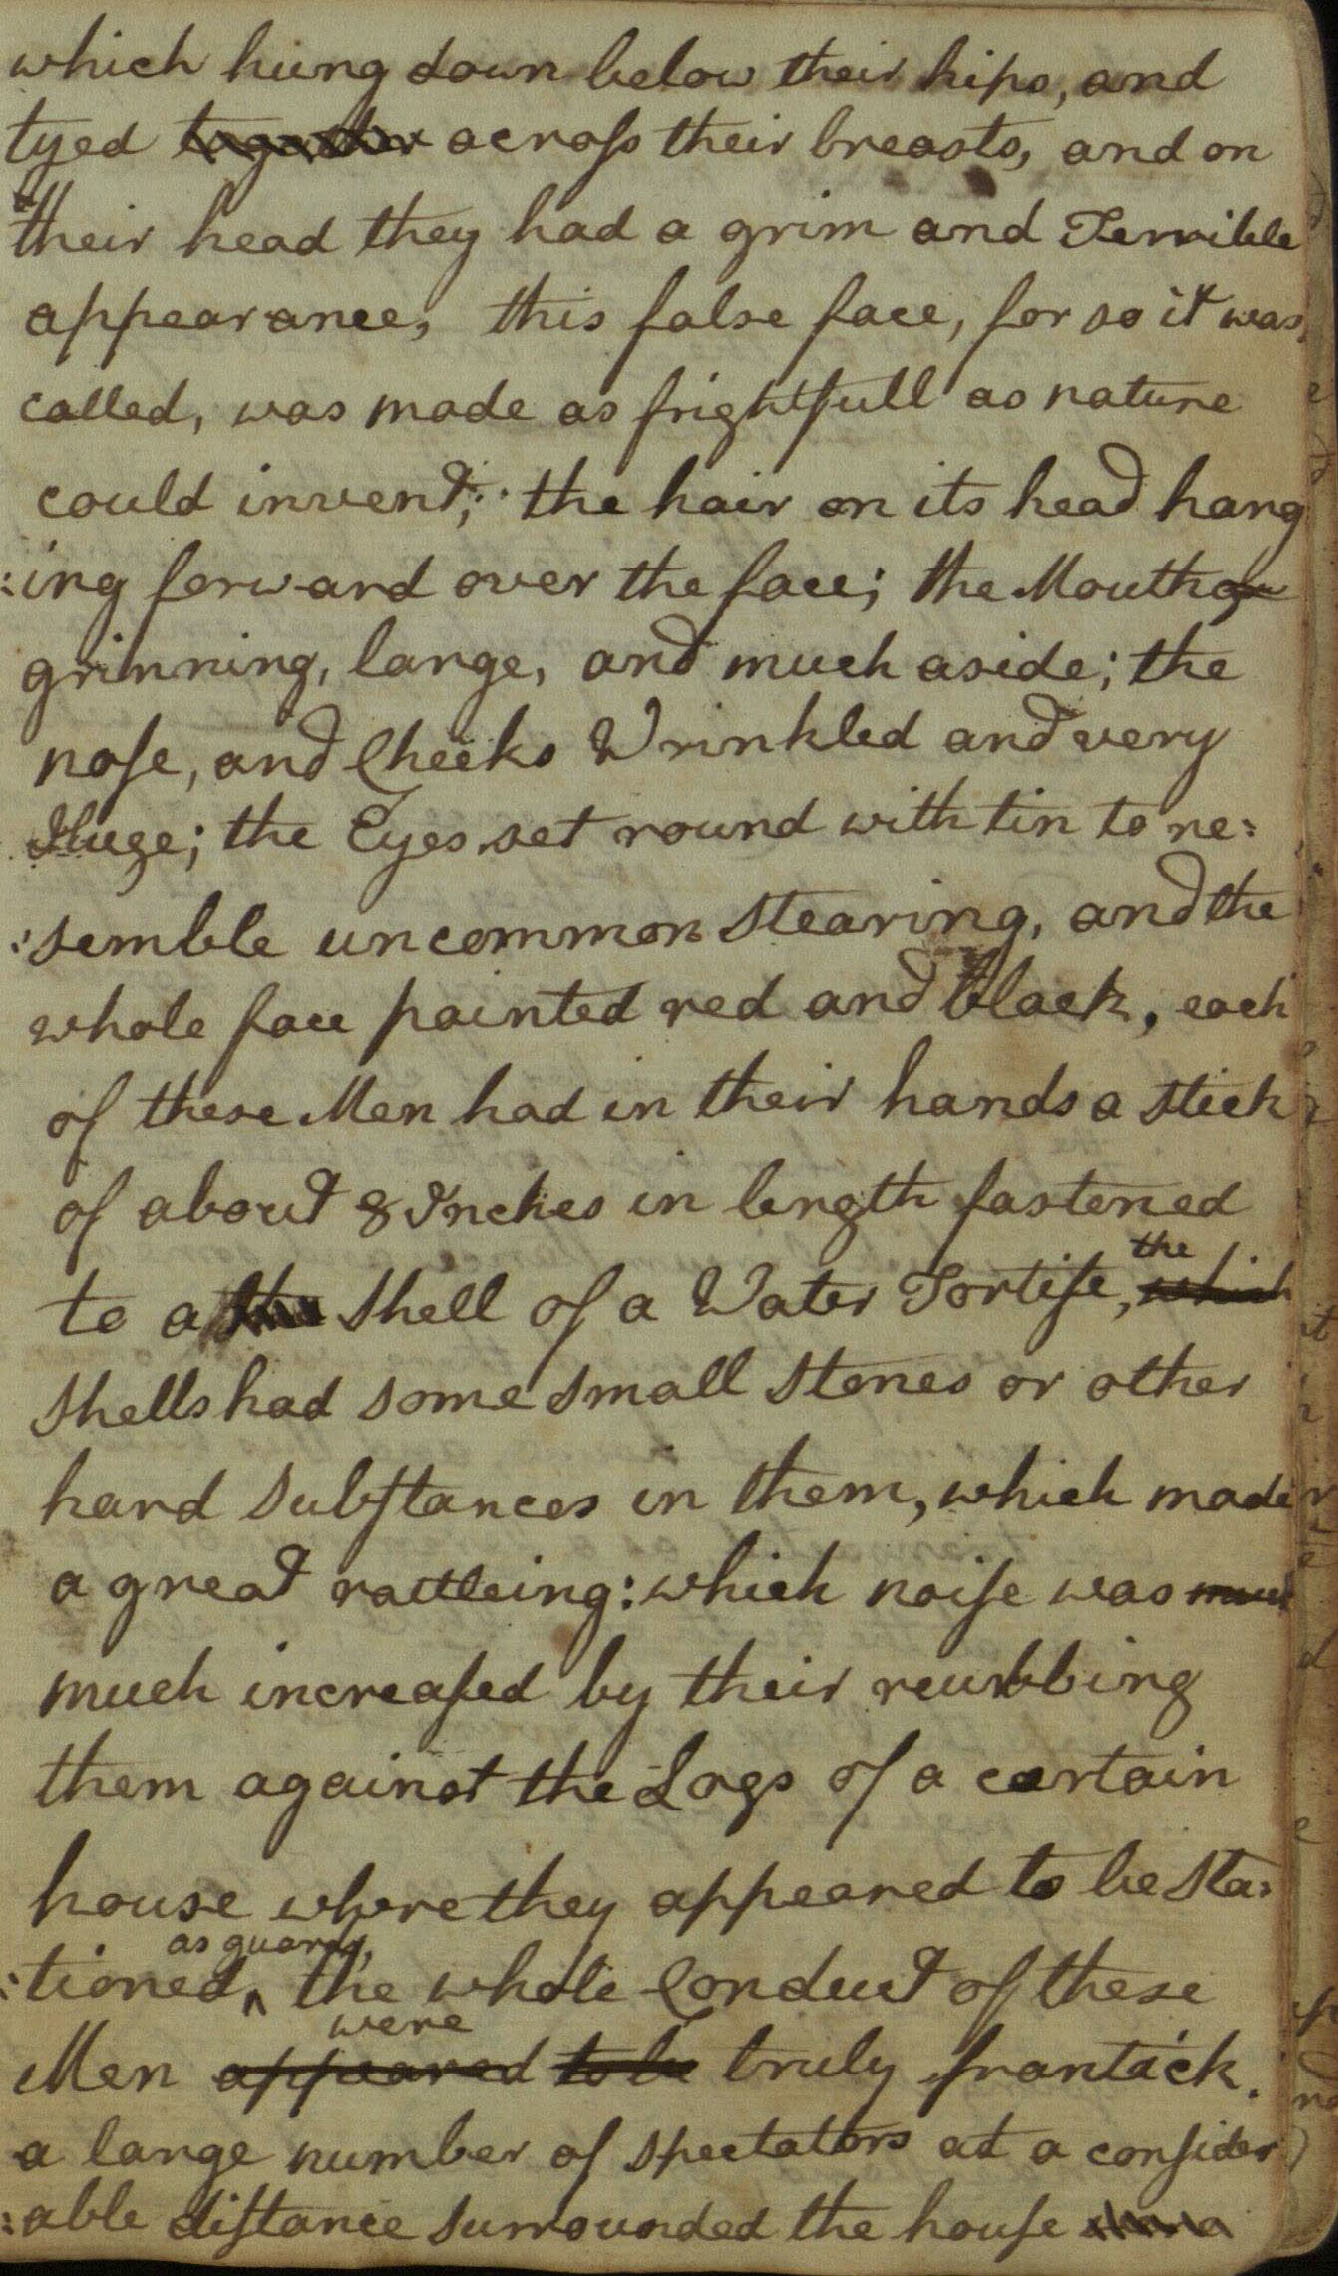 which hung down below their hips, and
tyed together acroſs their breasts, and on
their head they had a grim and Terrible
appearance, this false face, for so it was
called, was made as frightfull as nature
could invent; the hair on its head hang
:ing forward over the face; the Mouth
grinning, large, and much aside; the
noſe, and Cheeks Wrinkled and very
Huge; the Eyes set round with tin to re:
:semble uncommon Stearing, and the
whole face painted red and black, each
of these Men had in their hands a stick
of about 8 Inches in length fastened
the
to a Shell of a Water Tortiſe, which
Shells had some small Stones or other
hard Subſtances in them, which made
a great rattleing: which noiſe was much
much increaſed by their reubbing
them against the Logs of a certain
house where they appeared to be Sta:
as guards,
:tioned ‸ the whole Conduct of these
were
Men appeared to be truly frantick.
a large number of Spectators at a conſider
:able diſtance Surrounded the houſe